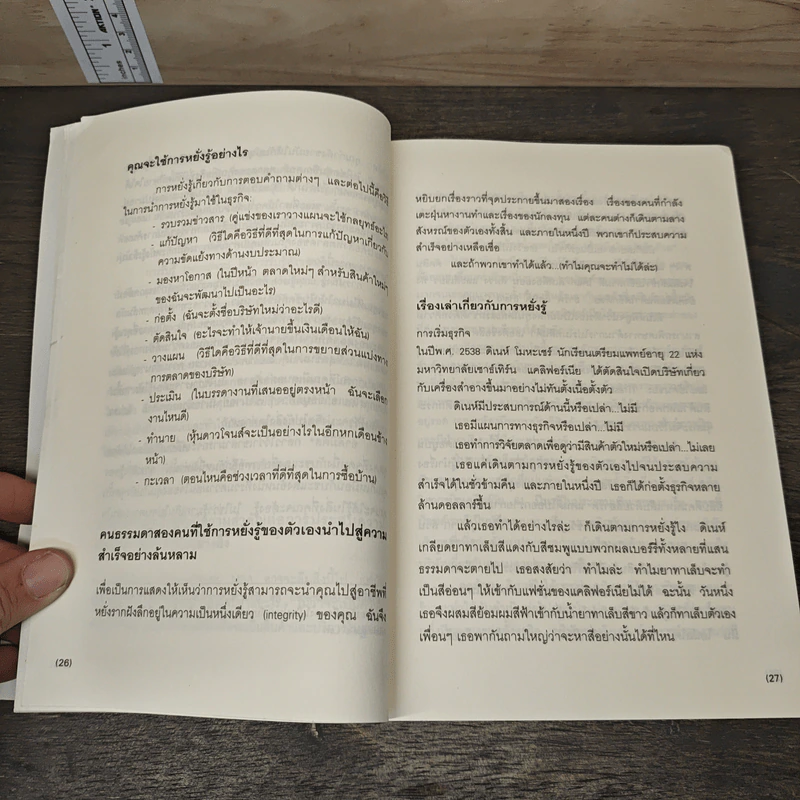 คุณจะใช้การหยั่งรู้อย่างไร
การหยั่งรู้เกี่ยวกับการตอบคำถามต่างๆ และต่อไปนี้คือวิธี
ในการนำการหยั่งรู้มาใช้ในธุรกิจ:
- รวบรวมข่าวสาร (คู่แข่งของเราวางแผนจะใช้กลยุทธ์อะไร
- แก้ปัญหา (วิธีใดคือวิธีที่ดีที่สุดในการแก้ปัญหาเกี่ยวกับ
ความขัดแย้งทางด้านงบประมาณ)
- มองหาโอกาส (ในปีหน้า ตลาดใหม่ๆ สำหรับสินค้าใหม่ๆ
ของฉันจะพัฒนาไปเป็นอะไร)
- ก่อตั้ง (ฉันจะตั้งชื่อบริษัทใหม่ว่าอะไรดี)
- ตัดสินใจ (อะไรจะทำให้เจ้านายขึ้นเงินเดือนให้ฉัน)
- วางแผน (วิธีใดคือวิธีที่ดีที่สุดในการขยายส่วนแบ่งทาง
การตลาดของบริษัท)
- ประเมิน (ในบรรดางานที่เสนออยู่ตรงหน้า ฉันจะเลือก
งานไหนดี)
- ทำนาย (หุ้นดาวโจนส์จะเป็นอย่างไรในอีกหกเดือนข้าง
หน้า)
- กะเวลา (ตอนไหนคือช่วงเวลาที่ดีที่สุดในการซื้อบ้าน)
คนธรรมดาสองคนที่ใช้การหยั่งรู้ของตัวเองนำไปสู่ความ
สำเร็จอย่างล้นหลาม
เพื่อเป็นการแสดงให้เห็นว่าการหยั่งรู้สามารถจะนำคุณไปสู่อาชีพที่
หยั่งรากฝังลึกอยู่ในความเป็นหนึ่งเดียว (integrity) ของคุณ ฉันจึง
(26)
หยิบยกเรื่องราวที่จุดประกายขึ้นมาสองเรื่อง เรื่องของคนที่กำลัง
เตะฝุ่นหางานทำและเรื่องของนักลงทุน แต่ละคนต่างก็เดินตามลาง
สังหรณ์ของตัวเองทั้งสิ้น และภายในหนึ่งปี พวกเขาก็ประสบความ
สำเร็จอย่างเหลือเชื่อ
และถ้าพวกเขาทำได้แล้ว...(ทำไมคุณจะทำไม่ได้ล่ะ)
เรื่องเล่าเกี่ยวกับการหยั่งรู้
การเริ่มธุรกิจ
ในปีพ.ศ. 2538 ดิเนห์ โมหะเซร์ นักเรียนเตรียมแพทย์อายุ 22 แห่ง
มหาวิทยาลัยเซาธ์เทิร์น แคลิฟอร์เนีย ได้ตัดสินใจเปิดบริษัทเกี่ยว
กับเครื่องสำอางขึ้นมาอย่างไม่ทันตั้งเนื้อตั้งตัว
ดิเนห์มีประสบการณ์ด้านนี้หรือเปล่า...ไม่มี
เธอมีแผนการทางธุรกิจหรือเปล่า...ไม่มี
เธอทำการวิจัยตลาดเพื่อดูว่ามีสินค้าตัวใหม่หรือเปล่า...ไม่เลย
เธอแค่เดินตามการหยั่งรู้ของตัวเองไปจนประสบความ
สำเร็จได้ในชั่วข้ามคืน และภายในหนึ่งปี เธอก็ได้ก่อตั้งธุรกิจหลาย
ล้านดอลลาร์ขึ้น
แล้วเธอทำได้อย่างไรล่ะ ก็เดินตามการหยั่งรู้ไง ดิเนห์
เกลียดยาทาเล็บสีแดงกับสีชมพูแบบพวกผลเบอร์รี่ทั้งหลายที่แสน
ธรรมดาจะตายไป เธอสงสัยว่า ทำไมล่ะ ทำไมยาทาเล็บจะทำ
เป็นสีอ่อนๆ ให้เข้ากับแฟชั่นของแคลิฟอร์เนียไม่ได้ ฉะนั้น วันหนึ่ง
เธอจึงผสมสีย้อมผมสีฟ้าเข้ากับน้ำยาทาเล็บสีขาว แล้วก็ทาเล็บตัวเอง
เพื่อนๆ เธอพากันถามใหญ่ว่าจะหาสีอย่างนั้นได้ที่ไหน
(27)